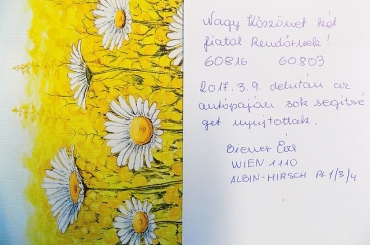 Nagy Köszönet két
fiatal Rendőrnek!
60816 60803
2017.3.9. delután az
autópaján sok segitsé
get nyujtottak.
Éva
WIEN 1110
ALBIN-HIRSCH Pl 1/3/4